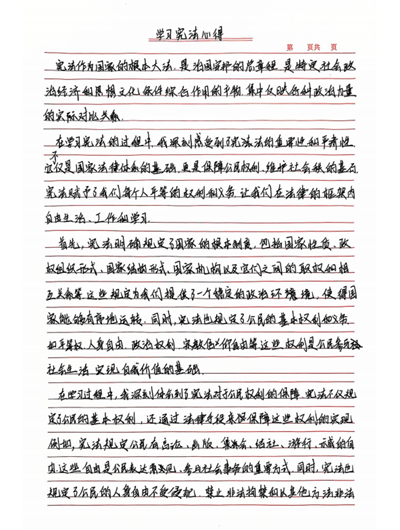 学习宪法心得
第 页共 页
宪法作为国家的根本大法,是治国安邦的总章程,是特定社会政
治经济和思想文化条件综合作用的产物,集中反映各种政治力量
的实际对比关系.
在学习宪法的过程中,我深刻感受到了宪法的重要性和严肃性
不仅是国家法律体系的基础,更是保障公民权利、维护社会秩的基石
宪法赋予了我们每个人平等的权利和义务,让我们在法律的框架内
自由生活、工作和学习.
首先,宪法明确规定了国家的根本制度,包括国家性质、政
权组织形式、国家结构形式、国家机构以及它们之间的职权和相
互关系等.这些规定为我们提供了一个稳定的政治环境境,使得国
家能够有序地运转.同时,宪法也规定了公民的基本权利和义务
如平等权、人身自由、政治权利、宗教信仰自由等这些权利是公民参与
社会生活、实现自我价值的基础.
在学习过程中,我深刻体会到了宪法对于公民权利的保障.宪法不仅规
定了公民的基本权利,还通过法律手段来保障这些权利的实现
例如,宪法规定公民有言论、出版、集会、结社、游行、示威的自
由,这些自由是公民表达意见、参与社会事务的重要方式.同时,宪法也
规定了公民的人身自由不受侵犯,禁止非法拘禁和以其他方法非法